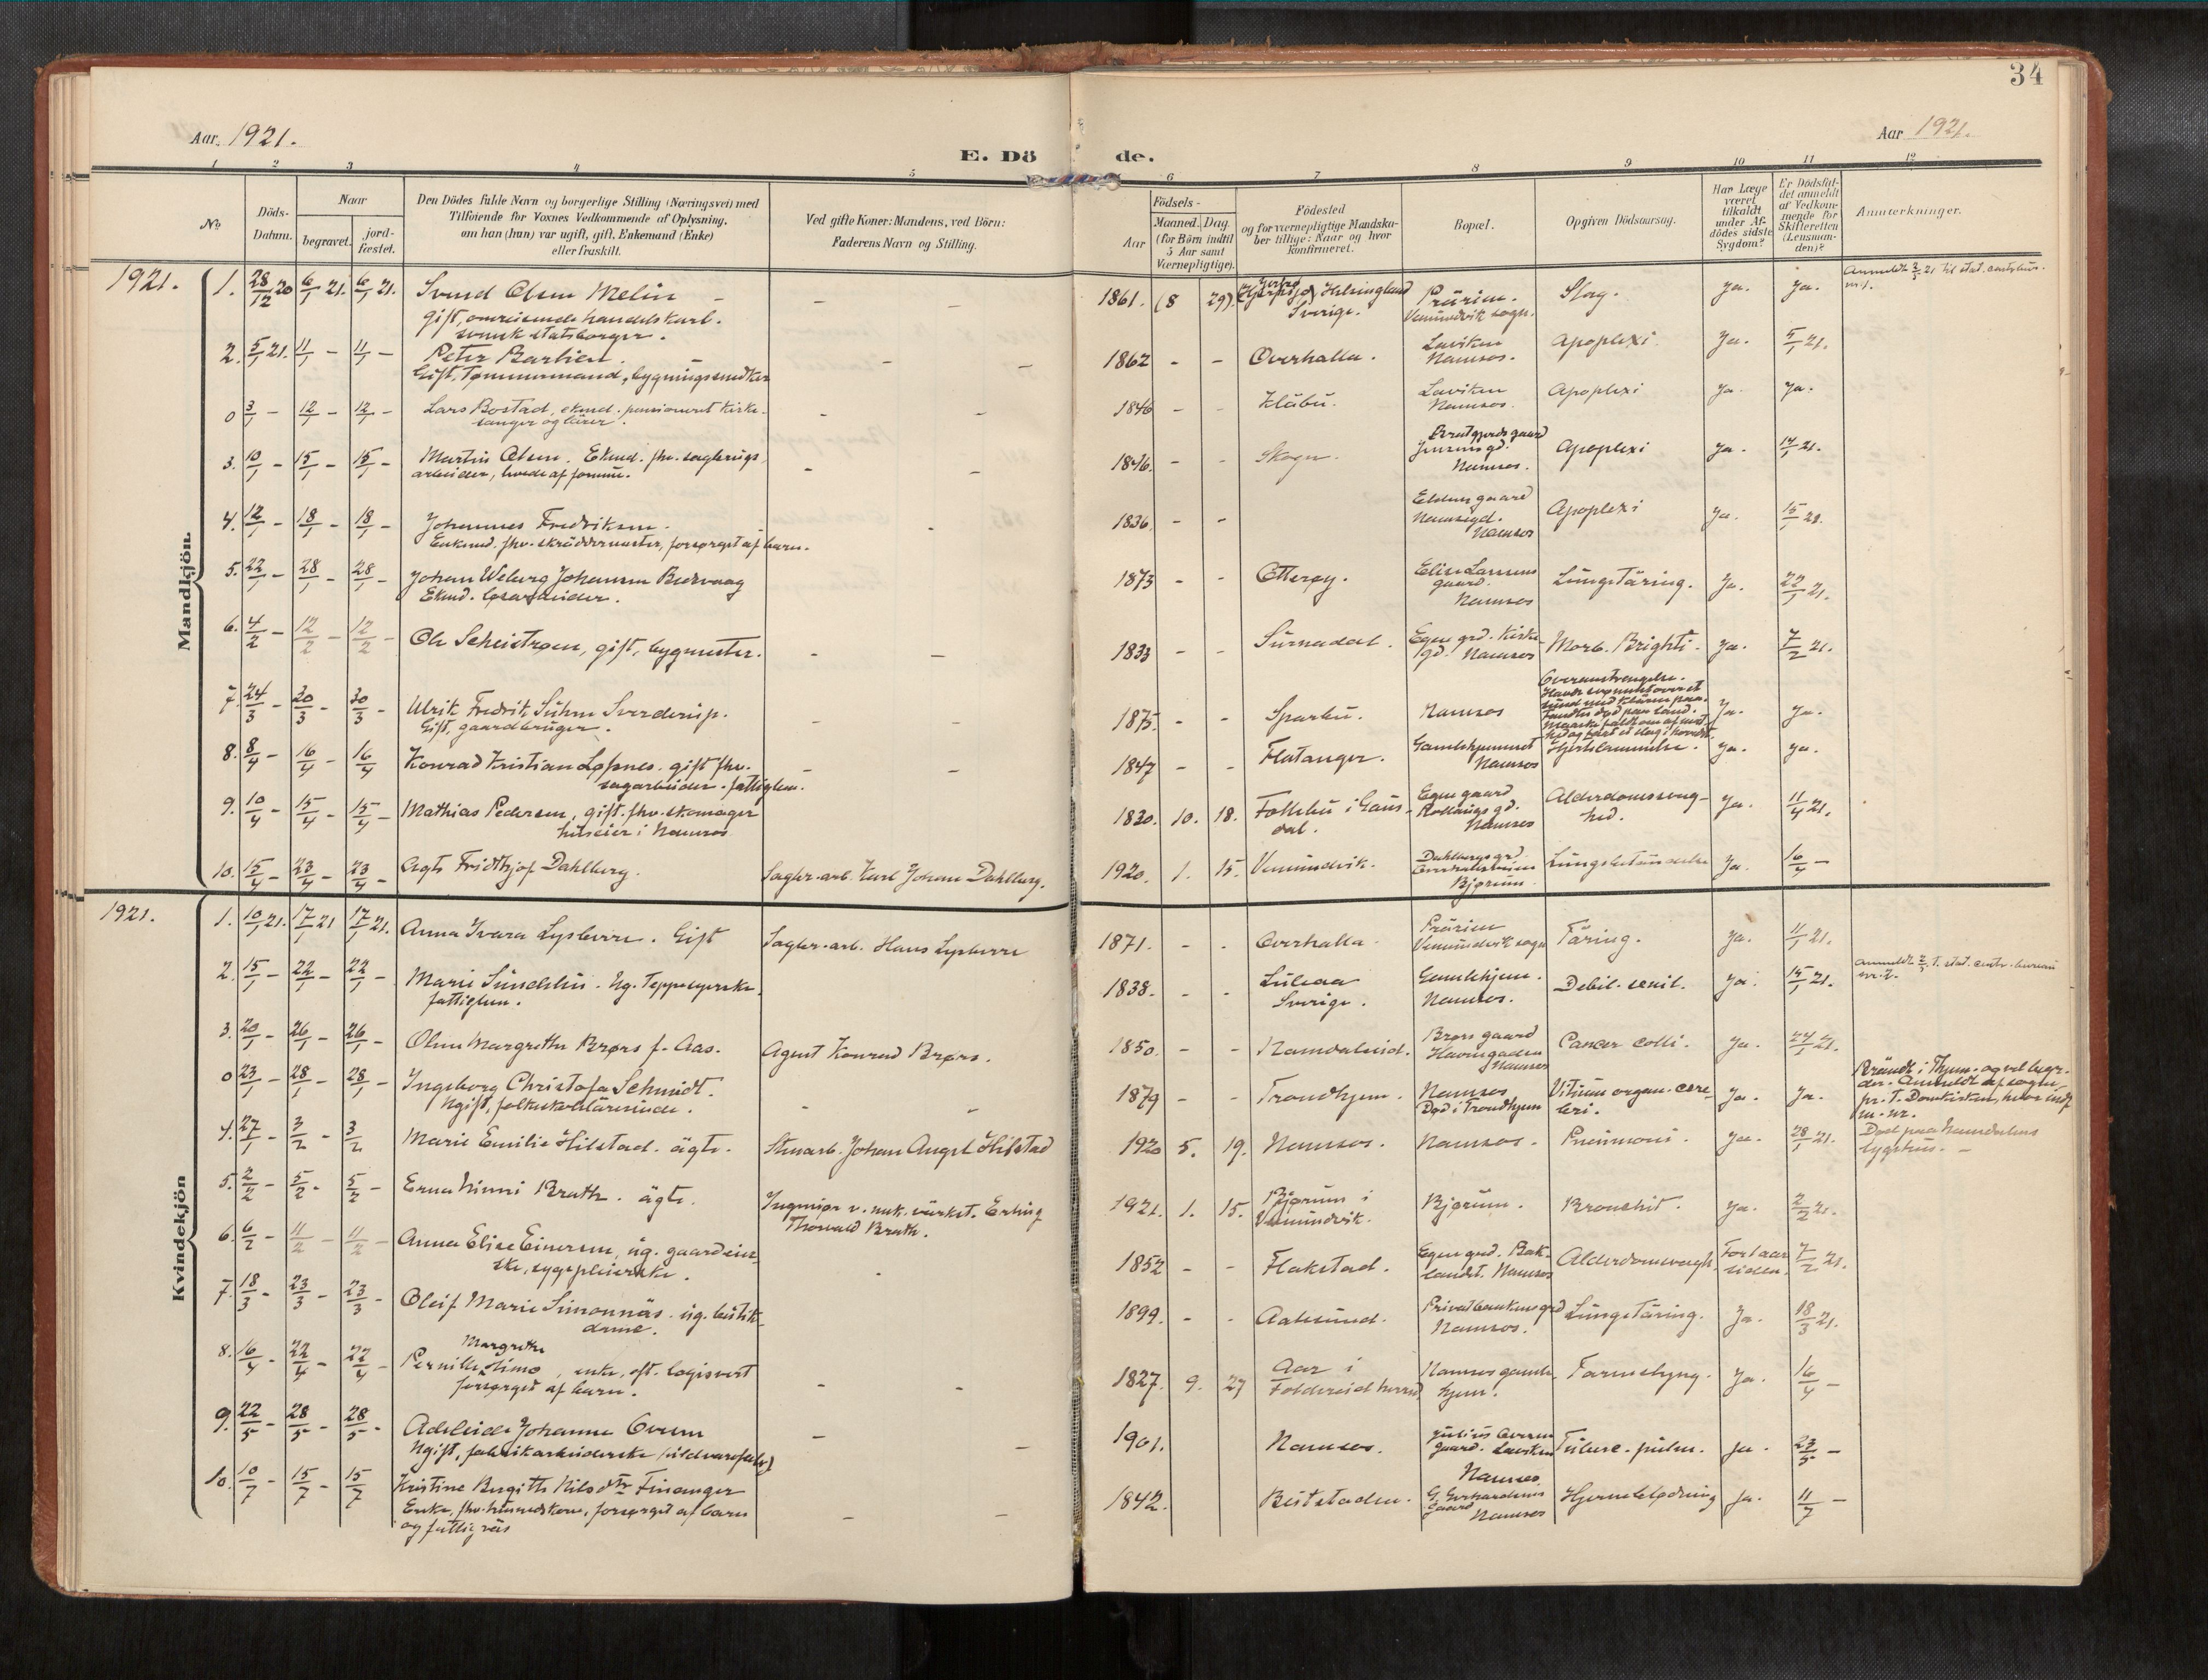 34
Aar 1921.
Aar 1921.
E. Dö de.
1 2 3 4 5 6 7 8 9 10 11 12
No.
Döds-
Datum.
Naar
begravet.
jord-
fæstet.
Den Dödes fulde Navn og borgerlige Stilling (Næringsvei) med
Tilföiende for Voxnes Vedkommende af Oplysning,
om han (hun) var ugift, gift, Enkemand (Enke)
eller fraskilt.
Ved gifte Koner: Mandens, ved Börn:
Faderens Navn og Stilling.
Födsels-
Aar
Maaned. Dag.
(for Börn indtil
5 Aar samt
Værnepligtige).
Födested
og for værnepligtige Mandska-
ber tillige: Naar og hvor
konfirmeret.
Bopæl.
Opgiven Dödsaarsag.
Har Læge
været
tilkaldt
under Af-
dödes sidste
Sygdom?
Er Dödsfal-
det anmeldt
af Vedkom-
mende for
Skifteretten
(Lensman-
den)?
Anmærkninger.
Mandkjön.
1921. 1. 28/12 20 6/1 21. 6/1 21. Svend Olsen Melin - - - 1861. (8 29). Helsingland Prärien. Slag. ja. ja.
Gift, omreisende handelskarl. Sverige. Vemundvik sogn.
svensk statsborger.
2. 5/1 21. 11/1 - 11/1 - Peter Barlien. - - - 1862 - - Overhalla. Laviken Apoplexi. Ja. 5/1 21.
Gift. Tømmermand, bygningssnedker Namsos.
0 3/1 - 12/1 - 12/1 - Lars Bostad, ekmd. pensioneret kirke- - - 1846 - - Klæbu. Laviken Apoplexi Ja. Ja.
sanger og lærer. Namsos.
3. 10/1 - 15/1 - 15/1 - Martin Olsen. Ekmd. fhv. sagbrugs- - - 1846. - - Skogn. Apoplexi Ja. 14/1 21.
arbeider, levede af formue. Namsos.
4. 12/1 - 18/1 - 18/1 - Johannes Fredriksen. - 1836. - - Apoplexi Ja. 15/1 21.
Enkemd. fhv. skräddermester, forsørget af barn. Namsos
5. 22/1 - 28/1 - 28/1 - Johan Weburg Johansen Bredvaag 1873 - - Otterøy. Elise Larsens Lungetäring. Ja. 22/1 21.
Ekmd. løsarbeider. gaard. Namsos
6. 4/2 - 12/2 - 12/2 - Ole Scheistrøen, gift, bygmester. - - 1833 - - Surnadal. Egen grd. Kirke- Morb. Brighti. Ja. 7/2 21.
gd. Namsos
7. 24/3 - 30/3 - 30/3 - Ulrik Fredrik Suhm Sverdrup. - - 1875 - - Sparbu. Namsos Overanstrengelse. Ja. ja.
Gift, gaardbruger.
8. 8/4 - 16/4 - 16/4 Konrad Kristian Løfsnes. gift fhv. - - 1847 - - Flatanger. Gamlehjemmet Hjertelammelse. Ja. ja.
sagarbeider. fattiglem. Namsos
9. 10/4 - 15/4 - 15/4 - Mathias Pedersen, gift. fhv. skomager 1830. 10. 18. Follebu i Gaus- Egen gaard Alderdomssvag- Ja. 11/4 21.
huseier i Namsos dal. Namsos hed.
10. 15/4 - 23/4 - 23/4 - Ägte Fridthjof Dahlberg. Sagbr.arb. Karl Johan Dahlberg. 1920. 1. 15. Vemundvik. Dahlbergs grd. Lungebetændelse Ja. 16/4 -
Bjørum
Kvindekjön
1921. 1. 10/1 21. 17/1 21 17/1 21. Anna Ivara Lysberre. Gift Sagbr.arb. Hans Lysberre 1871. - - Overhalla. Prärien Täring. Ja. 11/1 21.
Vemundvik sogn
2. 15/1 - 22/1 - 22/1 - Marie Sundelin. Ug. Teppesyerske. 1838. - - Luleaa Gamlehjem. Debil. senil. ja. 15/1 21.
fattiglem. Sverige. Namsos.
3. 20/1 - 26/1 - 26/1 - Oline Margrethe Brørs f. Aas. Agent Konrad Brørs. 1850. - - Namdaleid. Brørs gaard Cancer colli. Ja. 24/1 21.
Havnegaden Namsos
0 23/1 - 28/1 - 28/1 - Ingeborg Christofa Schmidt. - - 1879 - - Trondhjem. Namsos Vitium organ. cere- Ja. Ja.
Ugift, folkskolelärerinde. Død i Trondhjem bri.
4. 27/1 - 3/2 - 3/2 Marie Emilie Hilstad. ägte. Stuarb. Johan August Hilstad 1920 5. 19. Namsos. Namsos. Pneumoni. Ja. 28/1 21. Død paa Namdalens
sygehus. -
5. 2/2 - 5/2 - 5/2 - Erna Ninni Brath. ägte. Ingeniør v. Erling 1921. 1. 15. Bjørum i Bjørum. Bronchit. Ja. 2/2 21.
Thorvald Brath. Vemundvik.
6. 6/2 - 11/2 - 11/2 - Anna Elise Einersen, ug. gaardeier- - 1852 - - Flakstad. Egen grd. Bak- Alderdomssvagh. For 1 aar 7/2 21.
ske, sygepleierske. landet. Namsos siden.
7. 18/3 - 23/3 - 23/3 - Oleif Marie Simonnäs. ug. butik- 1899. - - Aalesund. Privatbankens grd Lungetäring. Ja. 18/3 21.
dame. Namsos.
8. 16/4 - 22/4 - 22/4 - Pernille Margrethe Simo, enke, eft. logisvert - - 1827. 9. 27 Aar i Namsos gamle- Tarmslyng. Ja. 16/4 -
forsørget af barn. Foldereid herred hjem.
9. 22/5 - 28/5 - 28/5 - Adeleide Johanne Overn - - 1901. Namsos. Laviken Tuberc. pulm. Ja. 23/5 -
Ugift, fabrikarbeiderske (uldvarefabr.)
10. 10/7 - 15/7 - 15/7 Kristine Birgitte Nilsdtr Finanger - - 1842. Beitstaden. Namsos Hjerneblødning Ja. 11/7 -
Enke, fhv. husmdskone, forsørget af barn
og fattigväs